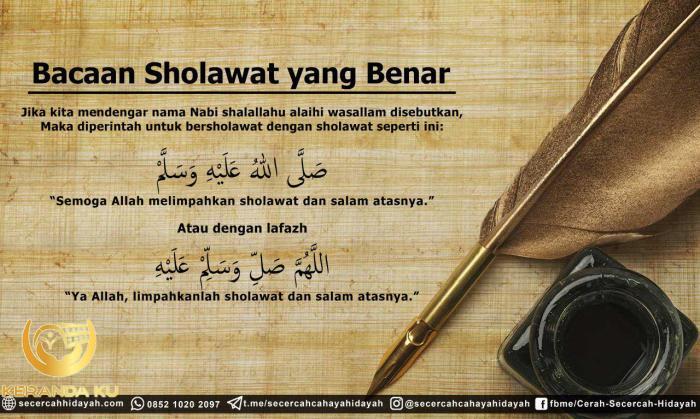 Bacaan Sholawat yang Benar
Jika kita mendengar nama Nabi shalallahu alaihi wasallam disebutkan,
Maka diperintah untuk bersholawat dengan sholawat seperti ini:
صَلَّى اللهُ عَلَيْهِ وَسَلَّمْ
“Semoga Allah melimpahkan sholawat dan salam atasnya.”
Atau dengan lafazh
اللَّهُمَّ صَلِّ وَسَلِّمْ عَلَيْهِ
“Ya Allah, limpahkanlah sholawat dan salam atasnya.”
KERANDA KU
secercahhidayah.com 0852 1020 2097 t.me/secercahcahayahidayah @secercahcahayahidayah fbme/Cerah-Secercah-Hidayah